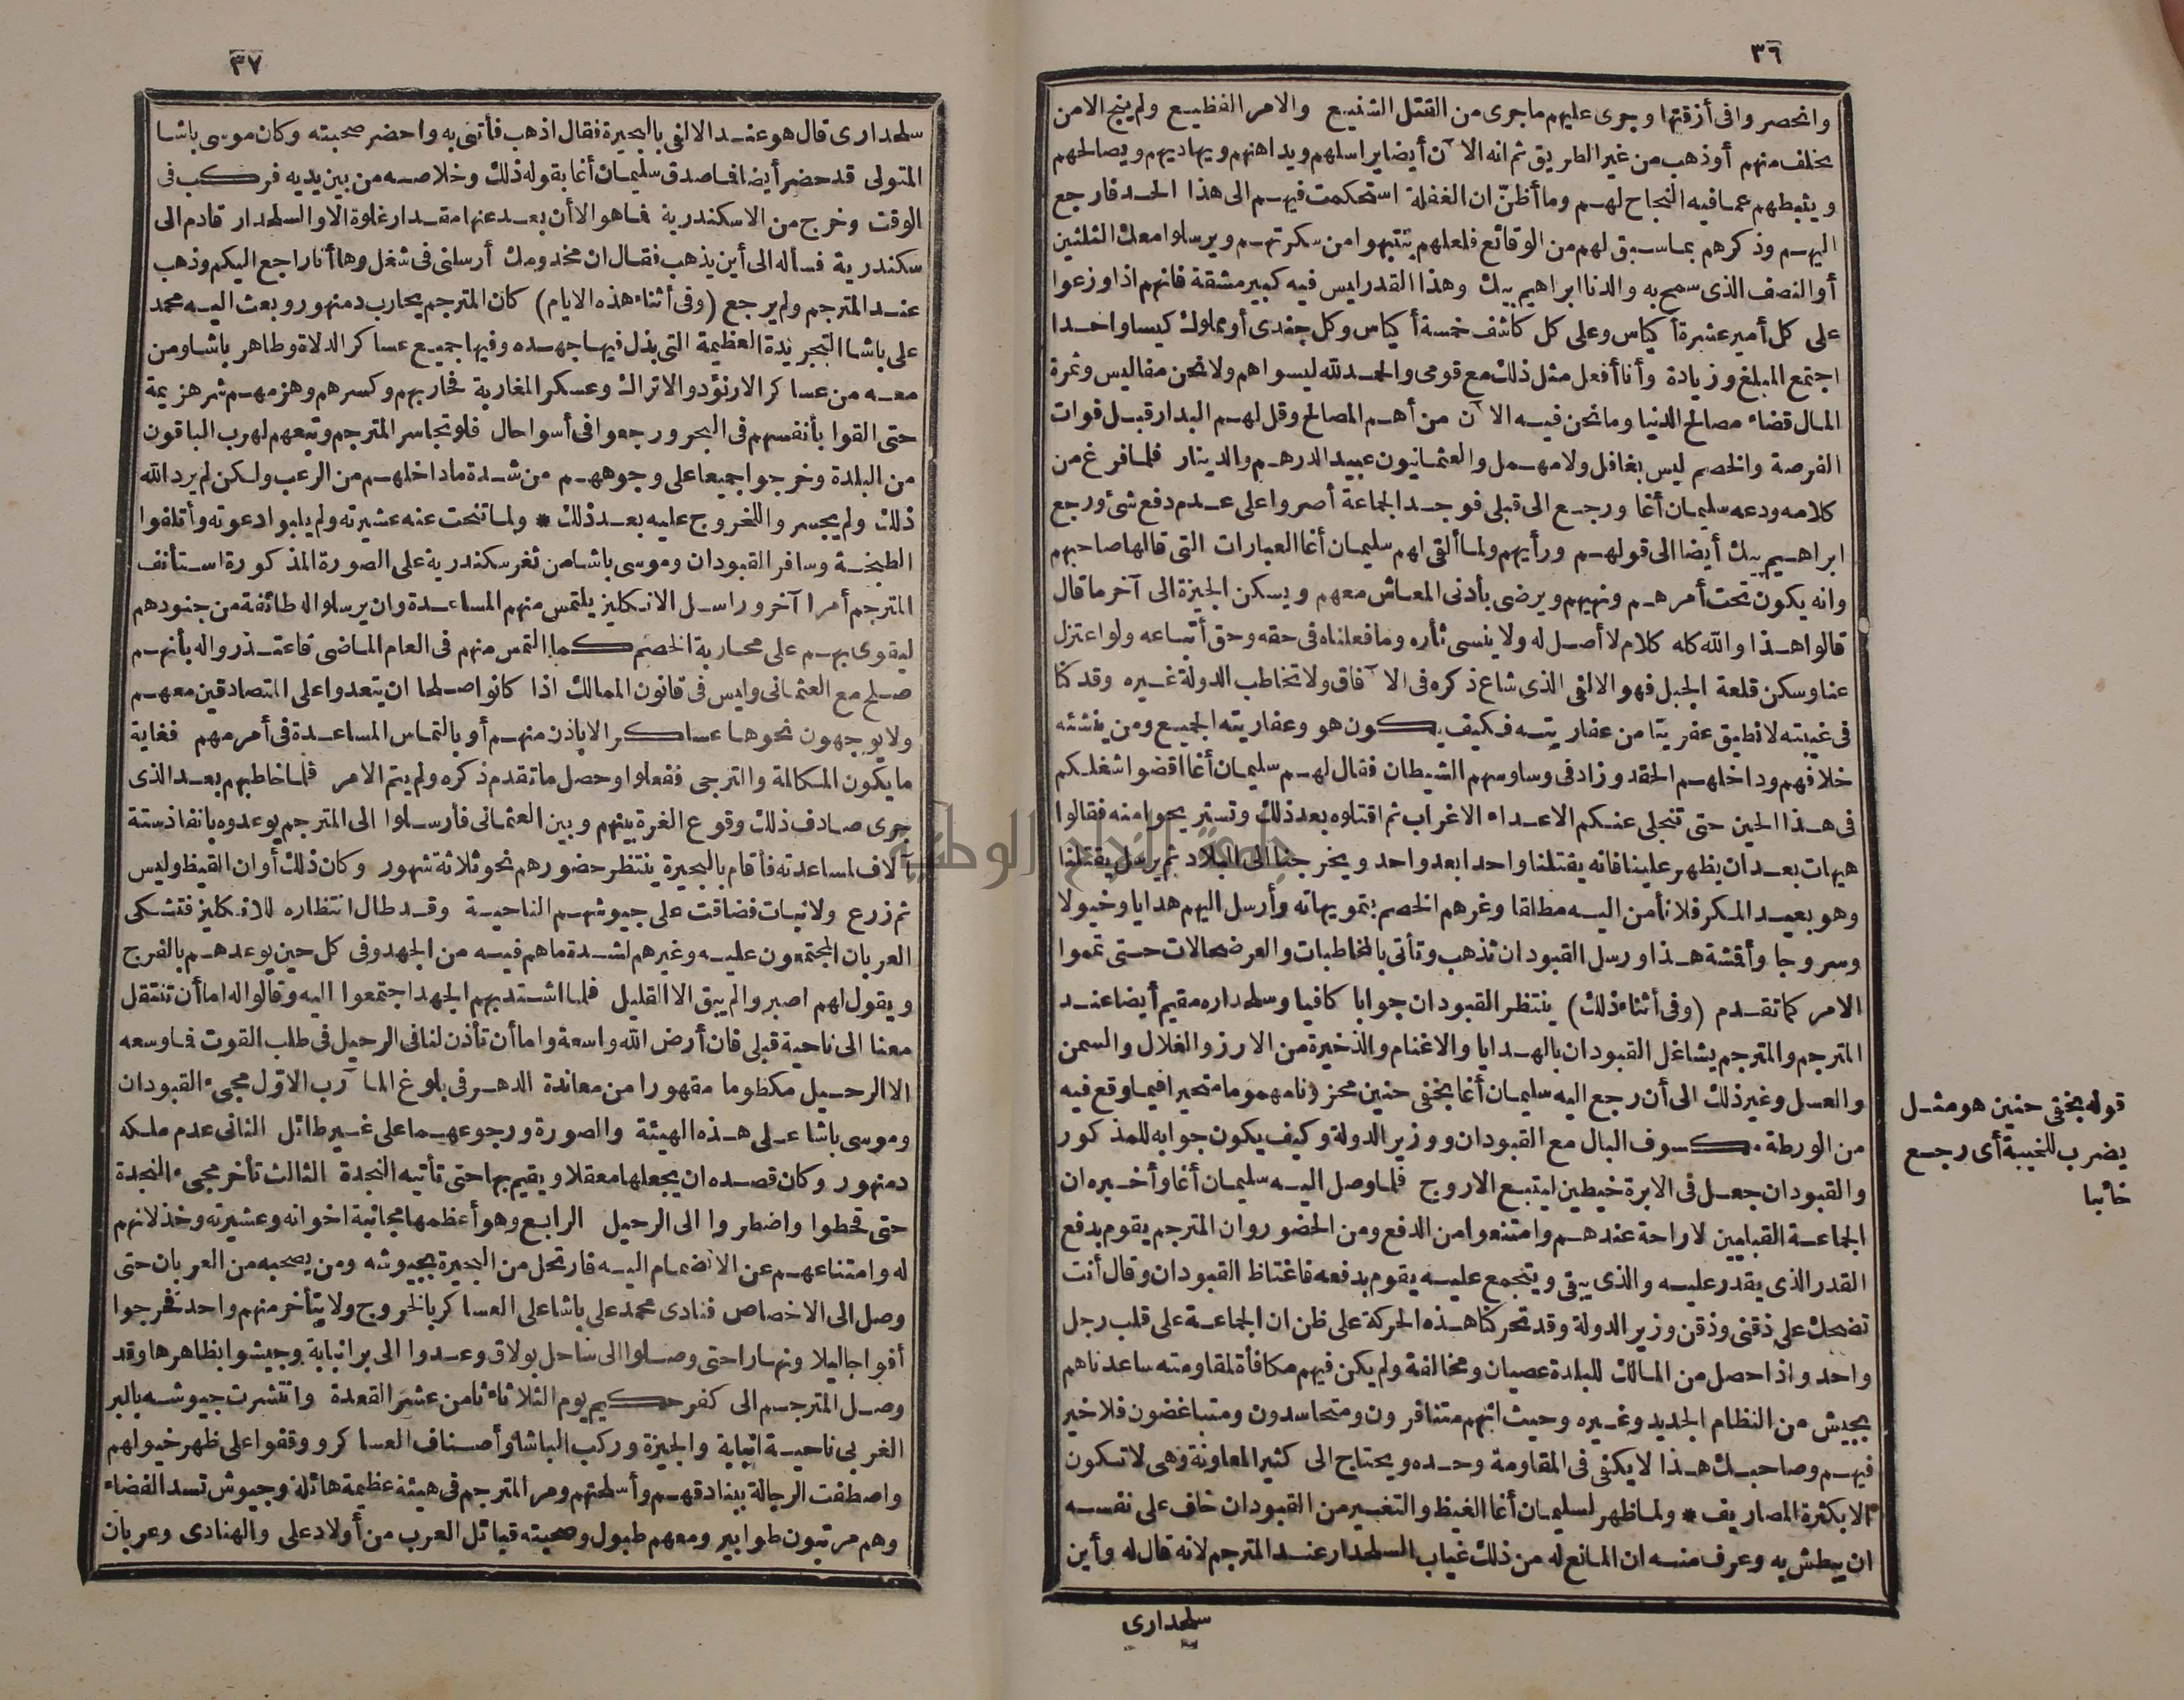 ٣٦
وانحصروا فى أزقتها وجرى عليهم ماجرى من القتل الشنيع والامر الفظيع ولم ينج الامن
تخلف منهم أوذهب من غير الطريق ثم انه الآن أيضا يراسلهم ويداهنهم ويهاديهم ويصالحهم
ويثبطهم عما فيه النجاح لهم وما أظنّ ان الغفلة استحكمت فيهم الى هذا الحد فارجع
اليهم وذكرهم بما سبق لهم من الوقائع فلعلهم ينتبهوا من سكرتهم ويرسلوا معك الثلثين
أوالنصف الذى سمح به والدنا ابراهيم بيك وهذا القدر ليس فيه كبير مشقة فانهم اذا وزعوا
على كل أمير عشرة أكياس وعلى كل كاشف خمسة أكياس وكل جندى أومملوك كيسا واحدا
اجتمع المبلغ وزيادة وأنا أفعل مثل ذلك مع قومى والحمد لله ليسوا هم ولا نحن مفاليس وثمرة
المال قضاء مصالح الدنيا وما نحن فيه الآن من أهم المصالح وقل لهم البدار قبل فوات
الفرصة والخصم ليس بغافل ولا مهمل والعثمانيون عبيد الدرهم والدينار فلما فرغ من
كلامه ودعه سليمان أغا ورجع الى قبلى فوجد الجماعة أصروا على عدم دفع شئ ورجع
ابراهيم بيك أيضا الى قولهم ورأيهم ولما ألقى لهم سليمان أغا العبارات التى قالها صاحبهم
وانه يكون تحت أمرهم ونهيهم ويرضى بأدنى المعاش معهم ويسكن الجيزة الى آخر ما قال
قالوا هذا والله كله كلام لا أصل له ولا ينسى ثاره وما فعلناه فى حقه وحق أتباعه ولو اعتزل
عنا وسكن قلعة الجبل فهو الالفى الذى شاع ذكره فى الآفاق ولا تخاطب الدولة غيره وقد كنا
فى غيبته لا نطيق عفريتا من عفاريته فكيف يكون هو وعفاريته الجميع ومن ينشئه
خلافهم وداخلهم الحقد وزاد فى وساوسهم الشيطان فقال لهم سليمان أغا اقضوا شغلكم
فى هذا الحين حتى تنجلى عنكم الاعداء الاغراب ثم اقتلوه بعد ذلك وتستريحوا منه فقالوا
هيهات بعد ان يظهر علينا فانه يقتلنا واحدا بعد واحد ويخرجنا الى البلاد ثم يرسل يقتلنا
وهو بعيد المكر فلا نأمن اليه مطلقا وغرهم الخصم بتمويهاته وأرسل اليهم هدايا وخيولا
وسروجا وأقشة هذا ورسل القبودان تذهب وتأتى بالمخاطبات والعرضحالات حتى تمموا
الامر كما تقدم (وفى أثناء ذلك) ينتظر القبودان جوابا كافيا وسلحداره مقيم أيضا عند
المترجم والمترجم يشاغل القبودان بالهدايا والاغنام والذخيرة من الارز والغلال والسمن
والعسل وغير ذلك الى أن رجع اليه سليمان أغا بخفى حنين محزونا مهموما متحيرا فيما وقع فيه
من الورطة مكسوف البال مع القبودان ووزير الدولة وكيف يكون جوابه للمذكور
والقبودان جعل فى الابرة خيطين ليتبع الاروج فلما وصل اليه سليمان أغا وأخبره ان
الجماعة القبليين لا راحة عندهم وامتنعوا من الدفع ومن الحضور وان المترجم يقوم بدفع
القدر الذى يقدر عليه والذى يبقى ويتجمع عليه يقوم بدفعه فاغتاظ القبودان وقال أنت
تضحك على ذقنى وذقن وزير الدولة وقد تحركنا هذه الحركة على ظن ان الجماعة على قلب رجل
واحد واذا حصل من المالك للبلدة عصيان ومخالفة ولم يكن فيهم مكافأة لمقاومته ساعدناهم
بجيش من النظام الجديد وغيره وحيث انهم متنافرون ومتحاسدون ومتباغضون فلا خير
فيهم وصاحبك هذا لا يكفى فى المقاومة وحده ويحتاج الى كثير المعاونة وهى لا تكون
الا بكثرة المصاريف * ولما ظهر لسليمان أغا الغيظ والتغيير من القبودان خاف على نفسه
ان يبطش به وعرف منه ان المانع له من ذلك غياب السلحدار عند المترجم لانه قال له وأين
سلحدارى
قوله بخفى حنين هو مثل
يضرب للخيبة أى رجع
خائبا
٣٧
سلحدارى قال هو عند الالفى بالبحيرة فقال اذهب فأتنى به واحضر صحبته وكان موسى باشا
المتولى قد حضر أيضا فما صدق سليمان أغا بقوله ذلك وخلاصه من بين يديه فركب فى
الوقت وخرج من الاسكندرية فما هو الا أن بعد عنها مقدار غلوة الا والسلحدار قادم الى
سكندرية فسأله الى أين يذهب فقال ان مخدومك أرسلنى فى شغل وها أنا راجع اليكم وذهب
عند المترجم ولم يرجع (وفى أثناء هذه الايام) كان المترجم يحارب دمنهور وبعث اليه محمد
على باشا التجريدة العظيمة التى بذل فيها جهده وفيها جميع عساكر الدلاة وطاهر باشا ومن
معه من عساكر الارنؤد والاتراك وعسكر المغاربة فحاربهم وكسرهم وهزمهم شر هزيمة
حتى القوا بأنفسهم فى البحر ورجعوا فى أسوا حال فلو تجاسر المترجم وتبعهم لهرب الباقون
من البلدة وخرجوا جميعا على وجوههم من شدة ما داخلهم من الرعب ولكن لم يرد الله
ذلك ولم يجسر واللخروج عليه بعد ذلك * ولما تنحت عنه عشيرته ولم يلبوا دعوته وأتلفوا
الطبخة وسافر القبودان وموسى باشا من ثغر سكندرية على الصورة المذكورة استأنف
المترجم أمرا آخر وراسل الانكليز يلتمس منهم المساعدة وان يرسلوا له طائفة من جنودهم
ليقوى بهم على محاربة الخصم كما التمس منهم فى العام الماضى فاعتذروا له بأنهم
صلح مع العثمانى وليس فى قانون الممالك اذا كانوا صلحا ان يتعدوا على المتصادقين معهم
ولا يوجهون نحوها عساكر الا باذن منهم أو بالتماس المساعدة فى أمر مهم فغاية
ما يكون المكالمة والترجى ففعلوا وحصل ما تقدم ذكره ولم يتم الامر فلما خاطبهم بعد الذى
جرى صادف ذلك وقوع الغرة بينهم وبين العثمانى فأرسلوا الى المترجم يوعدوه بانفاذ ستة
آلاف لمساعدته فأقام بالبحيرة ينتظر حضورهم نحو ثلاثة شهور وكان ذلك أوان القيظ وليس
ثم زرع ولا نبات فضاقت على جيوشهم الناحية وقد طال انتظاره للانكليز فتشكى
العربان المجتمعون عليه وغيرهم لشدة ما هم فيه من الجهد وفى كل حين يوعدهم بالفرج
ويقول لهم اصبروا لم يبق الا القليل فلما اشتد بهم الجهد اجتمعوا اليه وقالوا له اما أن تنتقل
معنا الى ناحية قبلى فان أرض الله واسعة واما أن تأذن لنا فى الرحيل فى طلب القوت فما وسعه
الا الرحيل مكظوما مقهورا من معاندة الدهر فى بلوغ المآرب الاوّل مجىء القبودان
وموسى باشا على هذه الهيئة والصورة ورجوعهما على غير طائل الثانى عدم ملكه
دمنهور وكان قصده ان يجعلها معقلا ويقيم بها حتى تأتيه النجدة الثالث تأخر مجىء النجدة
حتى قحطوا واضطروا الى الرحيل الرابع وهو أعظمها مجانبة اخوانه وعشيرته وخذلانهم
له وامتناعهم عن الانضمام اليه فارتحل من البحيرة بجيوشه ومن يصحبه من العربان حتى
وصل الى الاخصاص فنادى محمد على باشا على العساكر بالخروج ولا يتأخر منهم واحد فخرجوا
أفواجا ليلا ونهارا حتى وصلوا الى ساحل بولاق وعدوا الى بر انبابة وجيشوا بظاهرها وقد
وصل المترجم الى كفر حكيم يوم الثلاثاء ثامن عشر القعدة وانتشرت جيوشه بالبر
الغربى ناحية انبابة والجيزة وركب الباشا وأصناف العساكر ووقفوا على ظهر خيولهم
واصطفت الرجالة ببنادقهم وأسلحتهم ومر المترجم فى هيئة عظيمة هائلة وجيوش تسد الفضاء
وهم مرتبون طوابير ومعهم طبول وصحبته قبائل العرب من أولاد على والهنادى وعربان
جامعة النجاح الوطنية